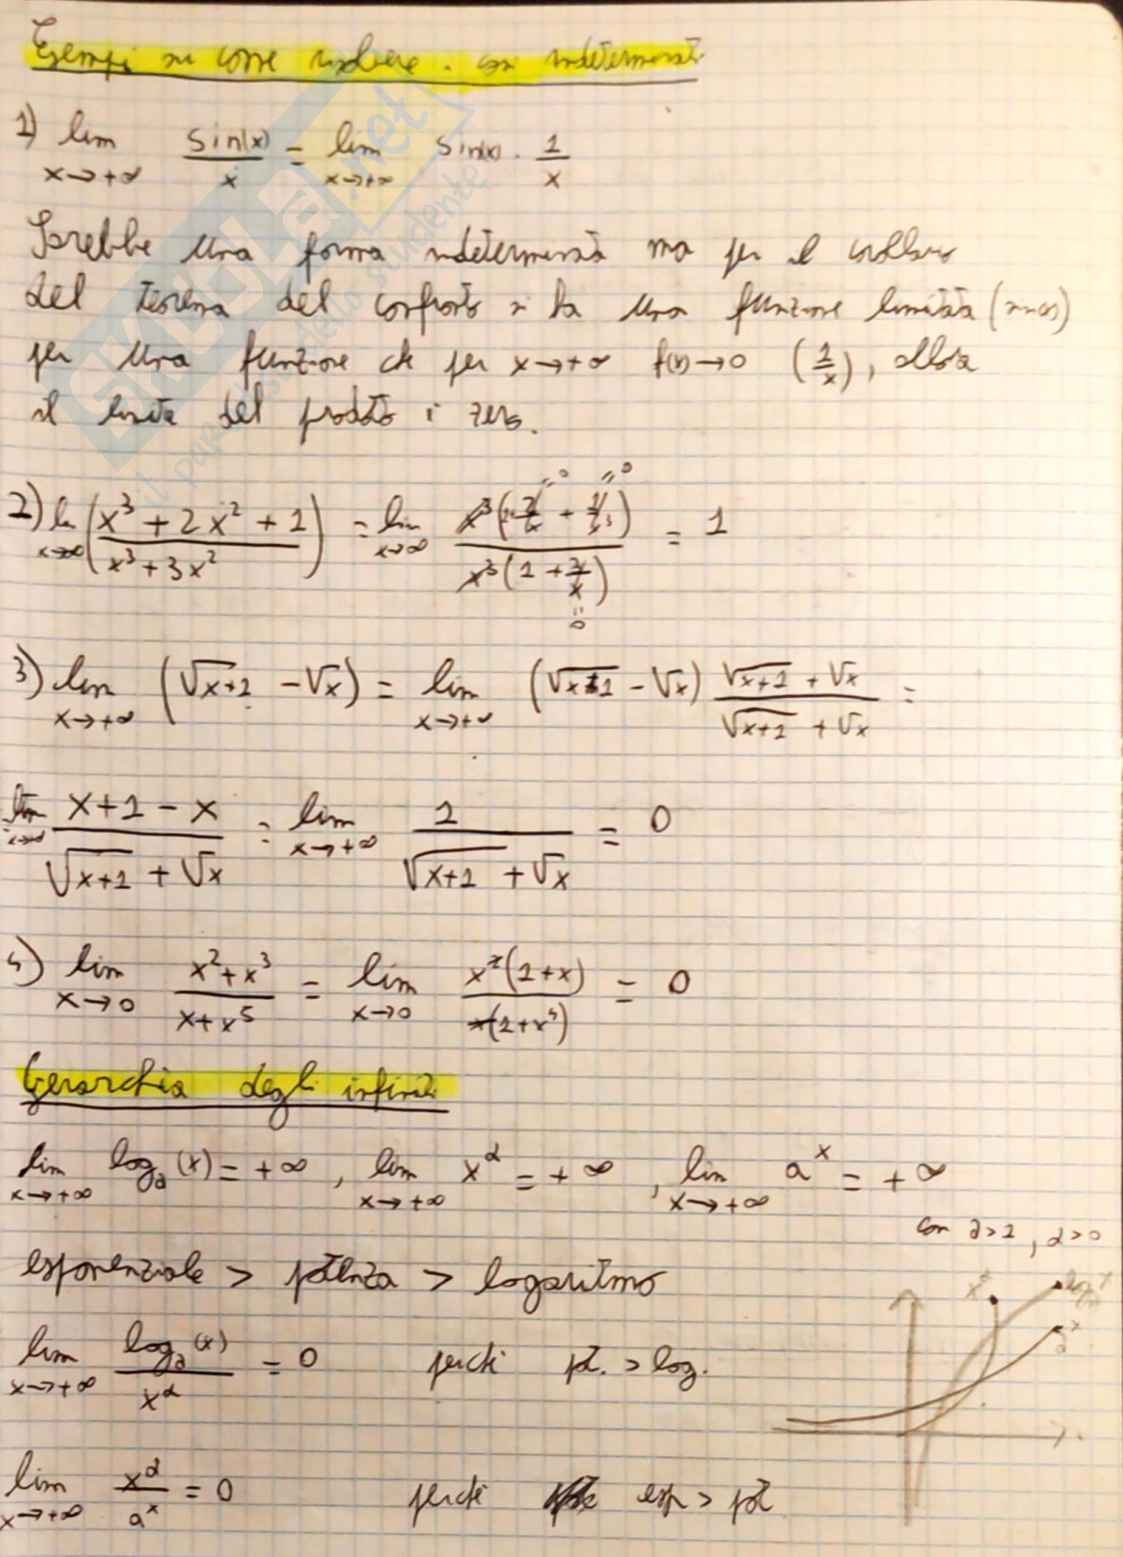 Esempi su come risolvere i casi indeterminati
1) lim x→+∞ sin(x)/x = lim x→+∞ sin(x) · 1/x
Sarebbe una forma indeterminata ma per il corollario
del teorema del confronto si ha una funzione limitata (sin(x))
per una funzione che per x→+∞ f(x)→0 (1/x), allora
il limite del prodotto è zero.
2) lim x→∞ (x³ + 2x² + 1 / x³ + 3x²) = lim x→∞ x³(1 + 2/x + 1/x³) / x³(1 + 3/x) = 1
3) lim x→+∞ (√x+1 - √x) = lim x→+∞ (√x+1 - √x) √x+1 + √x / √x+1 + √x =
= lim x→+∞ x+1-x / √x+1 + √x = lim x→+∞ 1 / √x+1 + √x = 0
4) lim x→0 x² + x³ / x + x⁵ = lim x→0 x²(1+x) / x(1+x⁴) = 0
Gerarchia degli infiniti
lim x→+∞ logₐ(x) = +∞, lim x→+∞ x^α = +∞, lim x→+∞ a^x = +∞
con a>1, α>0
esponenziale > potenza > logaritmo
x^α
a^x
lim x→+∞ logₐ(x) / x^α = 0 perché pot. > log.
lim x→+∞ x^α / a^x = 0 perché esp > pot
SKUOLA.net
il paradiso dello studente